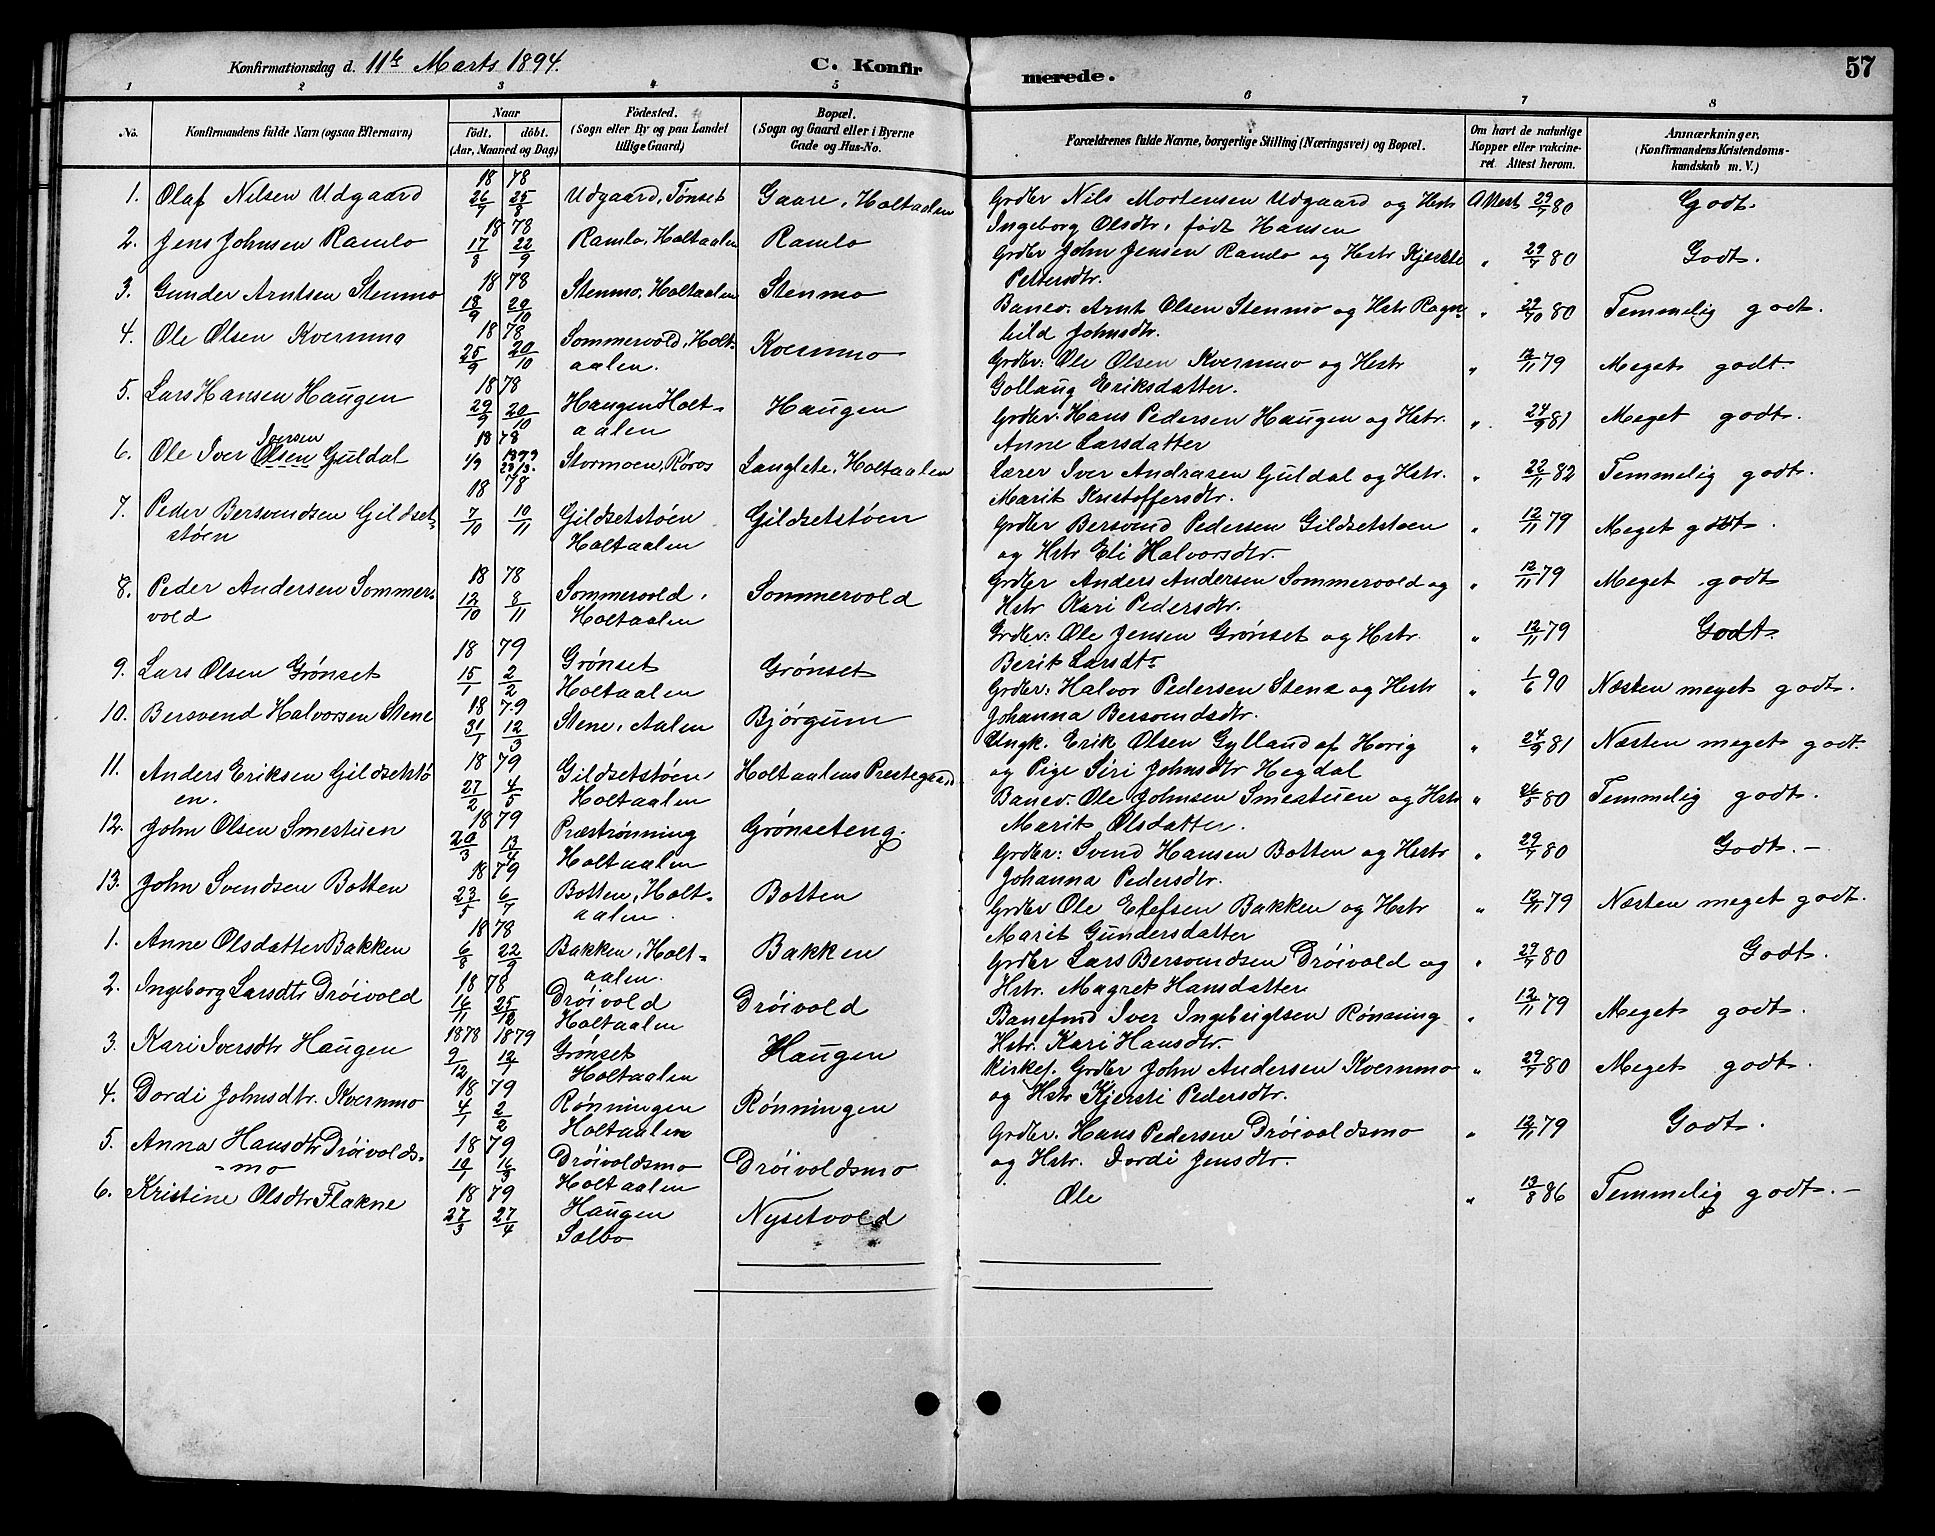 Konfirmationsdag d. 11te Marts 1894.
C. Konfirmerede.
57
1 2 3 4 5 6 7 8
No.
Konfirmandens fulde Navn (ogsaa Efternavn)
Naar
födt. döbt.
(Aar, Maaned og Dag)
Födested.
(Sogn eller By og paa Landet
tillige Gaard)
Bopæl.
(Sogn og Gaard eller i Byerne
Gade og Hus-No.
Forældrenes fulde Navne, borgerlige Stilling (Næringsvei) og Bopæl.
Om havt de naturlige
Kopper eller vakcine-
ret. Attest herom.
Anmærkninger,
(Konfirmandens Kristendoms-
kundskab m. V.)
1. Olaf Nilsen Udgaard 1878 26/7 25/8 Udgaard, Tønset Gaare, Holtaalen Grdbr Nils Mortensen Udgaard og Hstr Attest 29/7 80 Godt.
Ingeborg Olsdtr, født Hansen
2. Jens Johnsen Ramlo 1878 17/8 22/9 Ramlo, Holtaalen Ramlo Grdbr John Jensen Ramlo og Hstr Kjersti " 29/7 80 Godt.
Pettersdtr.
3. Gunder Arntsen Stenmo 1878 18/9 20/10 Stenmo, Holtaalen Stenmo Banev. Arnt Olsen Stenmo og Hstr Ragn- " 80 Temmelig godt.
hild Johnsdtr.
4. Ole Olsen Kvernmo 1878 25/9 20/10 Sommervold, Holt- Kvernmo Grdbr. Ole Olsen Kvernmo og Hstr " 12/11 79 Meget godt.
aalen. Gollaug Eriksdatter.
5. Lars Hansen Haugen 1878 29/9 20/10 Haugen Holt- Haugen Grdbr. Hans Pedersen Haugen og Hstr. " 24/9 81 Meget godt.
aalen Anne Larsdatter
6. Ole Iver Olsen Iversen Guldal 1878 1/9 1879 23/3. Stormoen, Røros Langlete, Holtaalen Lærer Iver Andrasen Guldal og Hstr. " 22/11 82 Temmelig godt.
Marit Kristoffersdtr.
7. Peder Bersvendsen Gildset- 1878 7/10 10/11 Gildsetstøen Gildsetstøen Grdbr Bersvend Pedersen Gildsetstøen " 12/11 79 Meget godt.
støen Holtaalen og Hstr Eli Halvorsdtr.
8. Peder Andersen Sommer- 1878 12/10 8/11 Sommervold, Sommervold Grdbr Anders Andersen Sommervold og " 12/11 79 Meget godt
vold Holtaalen Hstr Kari Pedersdtr.
9. Lars Olsen Grønset 1879 15/1 2/2 Grønset Grønset Grdbr: Ole Jensen Grønset og Hstr " 12/11 79 Godt
Holtaalen Berit Larsdtr
10. Bersvend Halvorsen Stene 1879 31/1 12/3 Stene, Aalen Bjørgum Grdbr: Halvor Pedersen Stene og Hstr " 1/6 90 Næsten meget godt.
Johanna Bersvendsdtr.
11. Anders Eriksen Gildsetstø 1879 27/2 4/5 Gildsetstøen, Holtaalens Prestegaard Ungk. Erik Olsen Gylland af Horig " 24/9 81 Næsten meget godt.
en. Holtaalen og Pige Siri Johnsdtr Hegdal
12. John Olsen Smestuen 1879 20/3 13/4 Præstrønning Grønseteng. Banev. Ole Johnsen Smestuen og Hstr " 26/5 80 Temmelig godt.
Holtaalen Marit Olsdatter.
13. John Svendsen Botten 1879 23/5 6/7 Botten, Holt- Botten Grdbr: Svend Hansen Botten og Hstr " 29/7 80 Godt. –
aalen. Johanna Pedersdtr.
1. Anne Olsdatter Bakken 1878 6/8 22/9 Bakken, Holt- Bakken Grdbr Ole Etefsen Bakken og Hstr " 12/11 79 Næsten meget godt.
aalen. Marit Gundersdatter
2. Ingeborg Larsdtr Drøivold 1878 16/11 25/12 Drøivold Drøivold Grdbr Lars Bersvendsen Drøivold og " 29/7 80 Godt.
Holtaalen Hstr. Magret Hansdatter
3. Kari Iversdtr Haugen 1878 9/12 1879 12/1 Grønset Haugen Banefmd Iver Ingebrigtsen Rønning " 12/11 79 Meget godt.
Holtaalen Hstr. Kari Hansdtr.
4. Dordi Johnsdtr. Kvernmo 1879 4/1 2/2 Rønningen Rønningen Kirkes. Grdbr John Andersen Kvernmo " 29/7 80 Meget godt.
Holtaalen og Hstr Kjersti Pedersdtr.
5. Anna Hansdtr Drøivolds- 1879 10/1 16/3 Drøivoldsmo Drøivoldsmo Grdbr. Hans Pedersen Drøivoldsmo " 12/11 79 Godt.
-mo Holtaalen og Hstr. Dordi Jensdtr.
6. Kristine Olsdtr Flakne 1879 27/3 27/4 Haugen Nysetvold Ole " 13/8 86 Temmelig godt. –
Sælbo